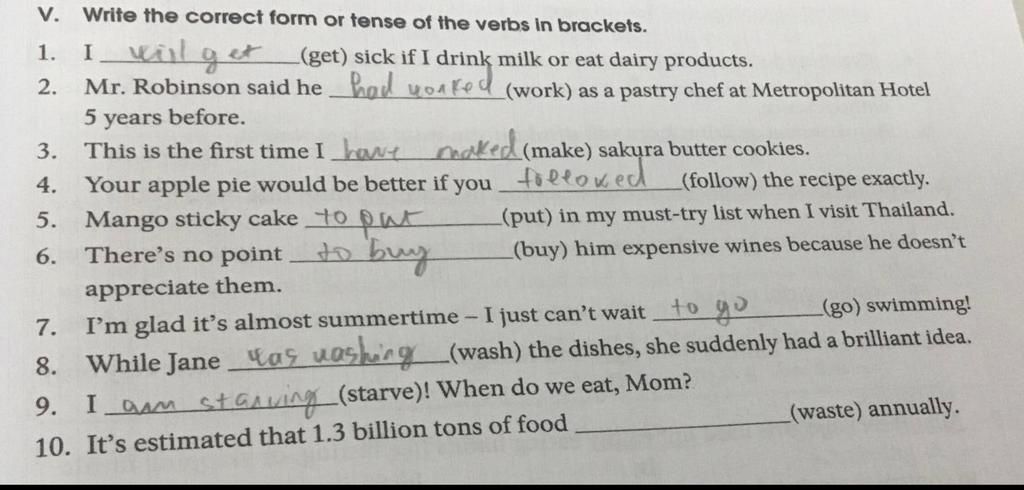 V. Write the correct form or tense of the verbs in brackets.
1. I will get (get) sick if I drink milk or eat dairy products.
2. Mr. Robinson said he had worked (work) as a pastry chef at Metropolitan Hotel
5 years before.
3. This is the first time I have maked (make) sakura butter cookies.
4. Your apple pie would be better if you followed (follow) the recipe exactly.
5. Mango sticky cake to put (put) in my must-try list when I visit Thailand.
6. There's no point to buy (buy) him expensive wines because he doesn't
appreciate them.
7. I'm glad it's almost summertime – I just can't wait to go (go) swimming!
8. While Jane was washing (wash) the dishes, she suddenly had a brilliant idea.
9. I am starving (starve)! When do we eat, Mom?
10. It's estimated that 1.3 billion tons of food ____________ (waste) annually.